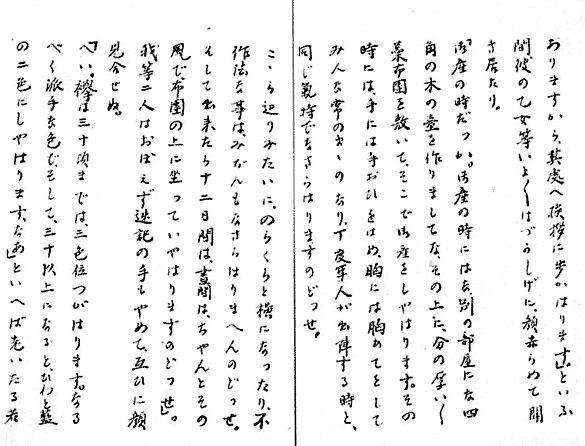 おりますから、其處へ挨拶に歩かはります」といふ
間彼の乙女等いよ〳〵はづかしげに、顔赤らめて聞
き居たり。
「御産の時だつか。御産の時にはな、別の部屋にな四
角の木の臺を作りましてな、その上に、分の厚い〳〵
藁布團を敷いて、そこで御産をしやはります。その
時には、手には手おひをはめ、胸には胸あてをして
みんな常の出のなり、丁度軍人が出陣する時と、
同じ氣持でなさらはりますのどつせ。
こゝら辺りみたいに、のらくらと横になつたり、不
作法な事は、みぢんもなさらはりまへんのどつせ。
そして出來たら十二日間は、晝間は、ちやんとその
風で布團の上に坐つていやはりますのどつせ」。
我等二人はおぼえず速記の手もやめて、互ひに顔
見合せぬ。
「へい。襷は三十頃までは、三色位つがはります。なる
べく派手な色でそして、三十以上になると、ひわと藍
の二色にしやはります、なあ」といへば老いたる若